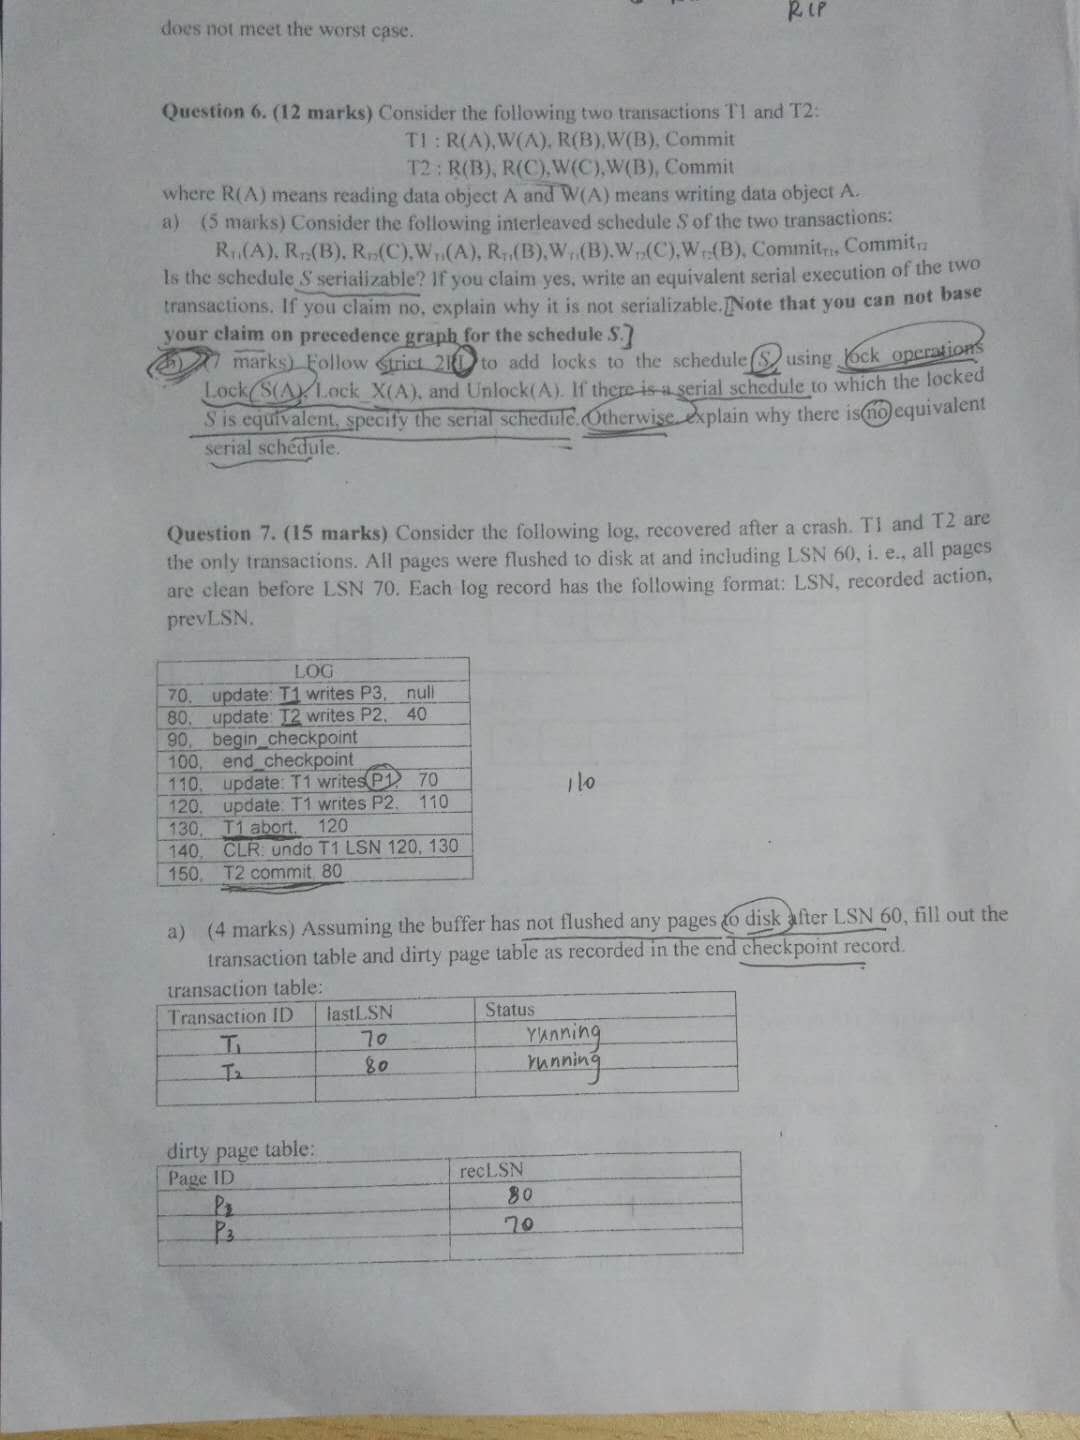 RIP
does not meet the worst case.
Question 6. (12 marks) Consider the following two transactions T1 and T2:
T1 : R(A),W(A), R(B),W(B), Commit
T2 : R(B), R(C),W(C),W(B), Commit
where R(A) means reading data object A and W(A) means writing data object A.
a) (5 marks) Consider the following interleaved schedule S of the two transactions:
R_T1(A), R_T2(B), R_T2(C),W_T1(A), R_T1(B),W_T1(B),W_T2(C),W_T2(B), Commit_T1, Commit_T2
Is the schedule S serializable? If you claim yes, write an equivalent serial execution of the two
transactions. If you claim no, explain why it is not serializable.[Note that you can not base
your claim on precedence graph for the schedule S.]
b) (7 marks) Follow strict 2PL to add locks to the schedule S using lock operations
Lock S(A), Lock X(A), and Unlock(A). If there is a serial schedule to which the locked
S is equivalent, specify the serial schedule. Otherwise, explain why there is no equivalent
serial schedule.
Question 7. (15 marks) Consider the following log, recovered after a crash. T1 and T2 are
the only transactions. All pages were flushed to disk at and including LSN 60, i. e., all pages
are clean before LSN 70. Each log record has the following format: LSN, recorded action,
prevLSN.
LOG
70, update: T1 writes P3, null
80, update: T2 writes P2, 40
90, begin_checkpoint
100, end_checkpoint
110, update: T1 writes P1, 70
110
120, update: T1 writes P2, 110
130, T1 abort, 120
140, CLR: undo T1 LSN 120, 130
150, T2 commit, 80
a) (4 marks) Assuming the buffer has not flushed any pages to disk after LSN 60, fill out the
transaction table and dirty page table as recorded in the end checkpoint record.
transaction table:
Transaction ID lastLSN Status
T1 70 running
T2 80 running
dirty page table:
Page ID recLSN
P2 80
P3 70